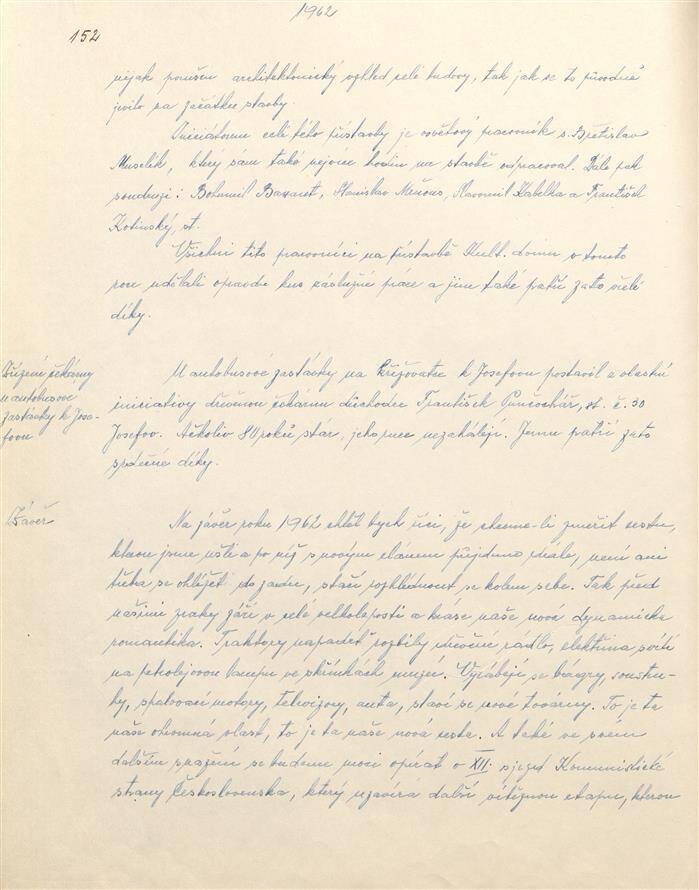 1962
152
nějak porušen architektonický vzhled celé budovy, tak jak se to původně
jevilo na začátku stavby.
Iniciátorem celé této přístavby je osvětový pracovník s. Břetislav
Muselík, který sám také nejvíce hodin na stavbě odpracoval. Dále pak
soudruzi: Bohumil Stanislav Slavomil Kabelka a František
Kotinský, st.
Všichni tito pracovníci na přístavbě Kult. domu v tomto
roce udělali opravdu kus záslužné práce a jim také patří za to vřelé
díky.
Zřízení čekárny
u autobusové
zastávky k Jose-
fovu
U autobusové zastávky na křižovatce k Josefovu postavil z vlastní
iniciativy dřevěnou čekárnu důchodce František Punčochář, st. č. 30
Josefov. Ačkoliv 80 roků stár, jeho ruce nezahálejí. Jemu patří za to
srdečné díky.
Závěr
Na závěr roku 1962 chtěl bych říci, že chceme-li změřit cestu,
kterou jsme ušli a po níž s novým elánem půjdeme dále, není ani
třeba se ohlížet do zadu, stačí rozhlédnout se kolem sebe. Tak před
našimi zraky září v celé velkoleposti a kráse naše nová dynamická
romantika. Traktory napadeť rozbily dřevěné rádlo, elektřina svítí
na petrolejovou lampu ve skříňkách muzeí. Vyrábějí se bagry, soustru-
hy, spalovací motory, televizory, auta, staví se nové továrny. To je ta
naše ohromná vlast, to je ta naše nová cesta. A také ve svém
dalším snažení se budeme moci opírat o XII. sjezd Komunistické
strany Československa, který uzavírá další vítěznou etapu, kterou